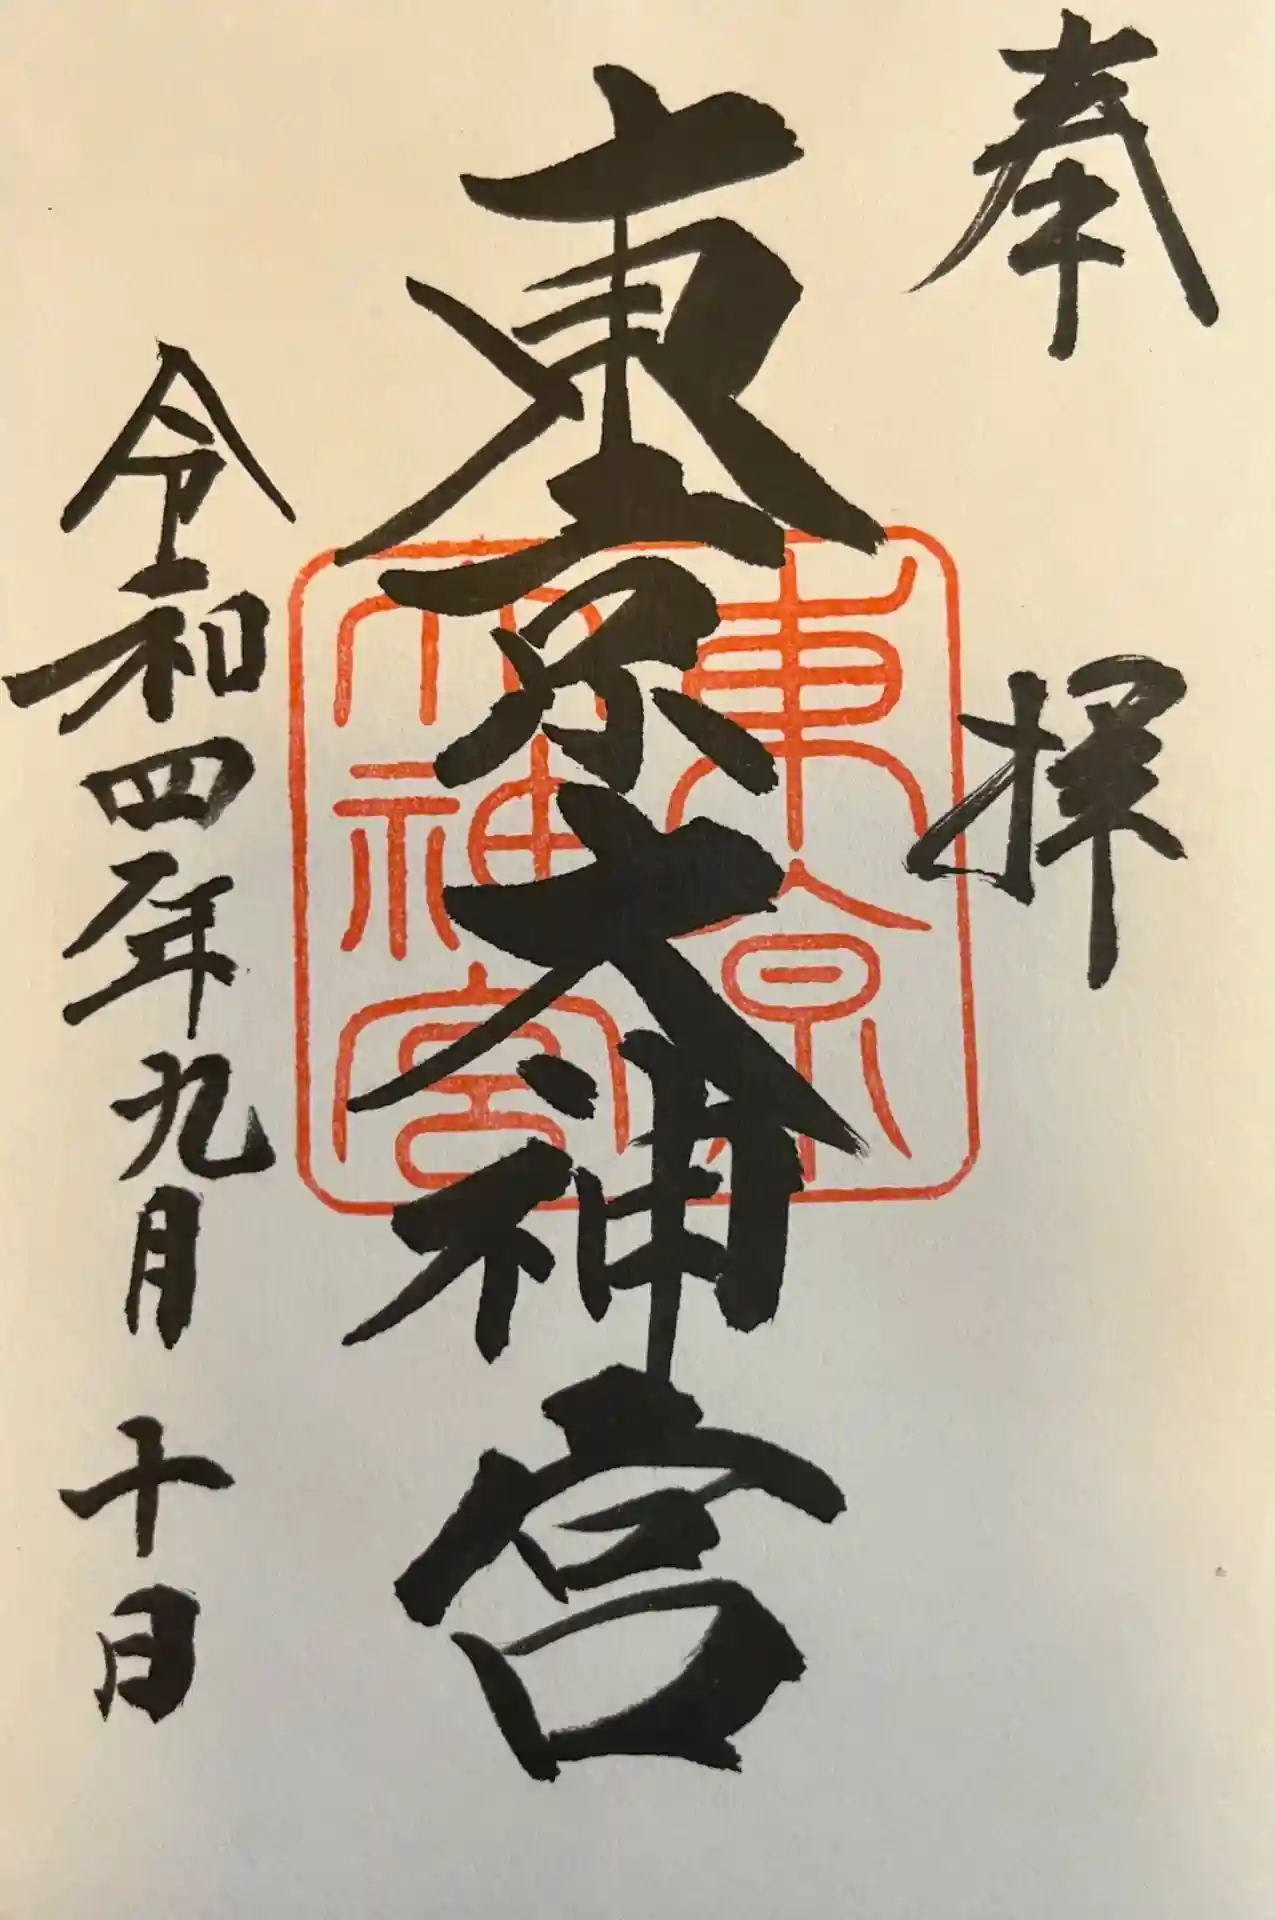 奉拝
東京大神宮
東京
大神宮
令和四年九月十日